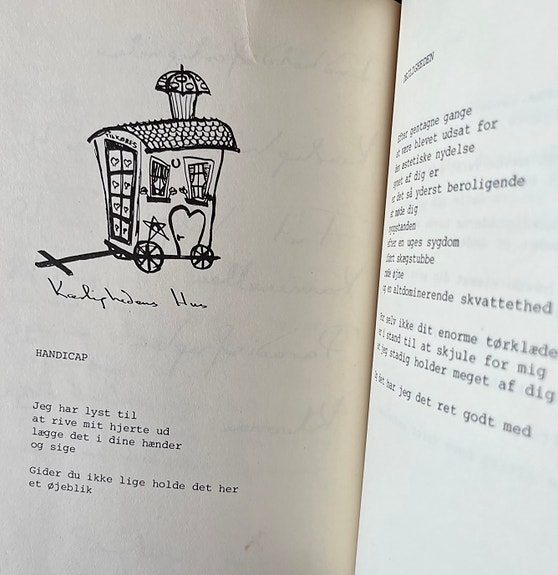 Kærlighedens Hus
HANDICAP
Jeg har lyst til
at rive mit hjerte ud
lægge det i dine hænder
og sige
Gider du ikke lige holde det her
et øjeblik
efter gentagne gange
at være blevet udsat for
den æstetiske nydelse
synet af dig er
er det så yderst beroligende
at møde dig
opstanden
efter en uges sygdom
iført skægstubbe
røde øjne
og en altdominerende skvattethed
For selv ikke dit enorme tørklæde
er i stand til at skjule for mig
at jeg stadig holder meget af dig
Og det har jeg det ret godt med